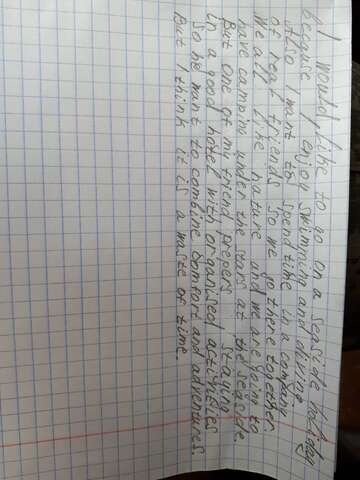 I would like to go on a seaside holiday
because I enjoy swimming and diving.
Also I want to spend time in a company
of real friends so we go there together
We all like nature and we are going to
have camping under the stars at the seaside.
But one of my friend prefers staying
in a good hotel with organised activities
So he want to combine comfort and adventures.
But I think it is a waste of time.